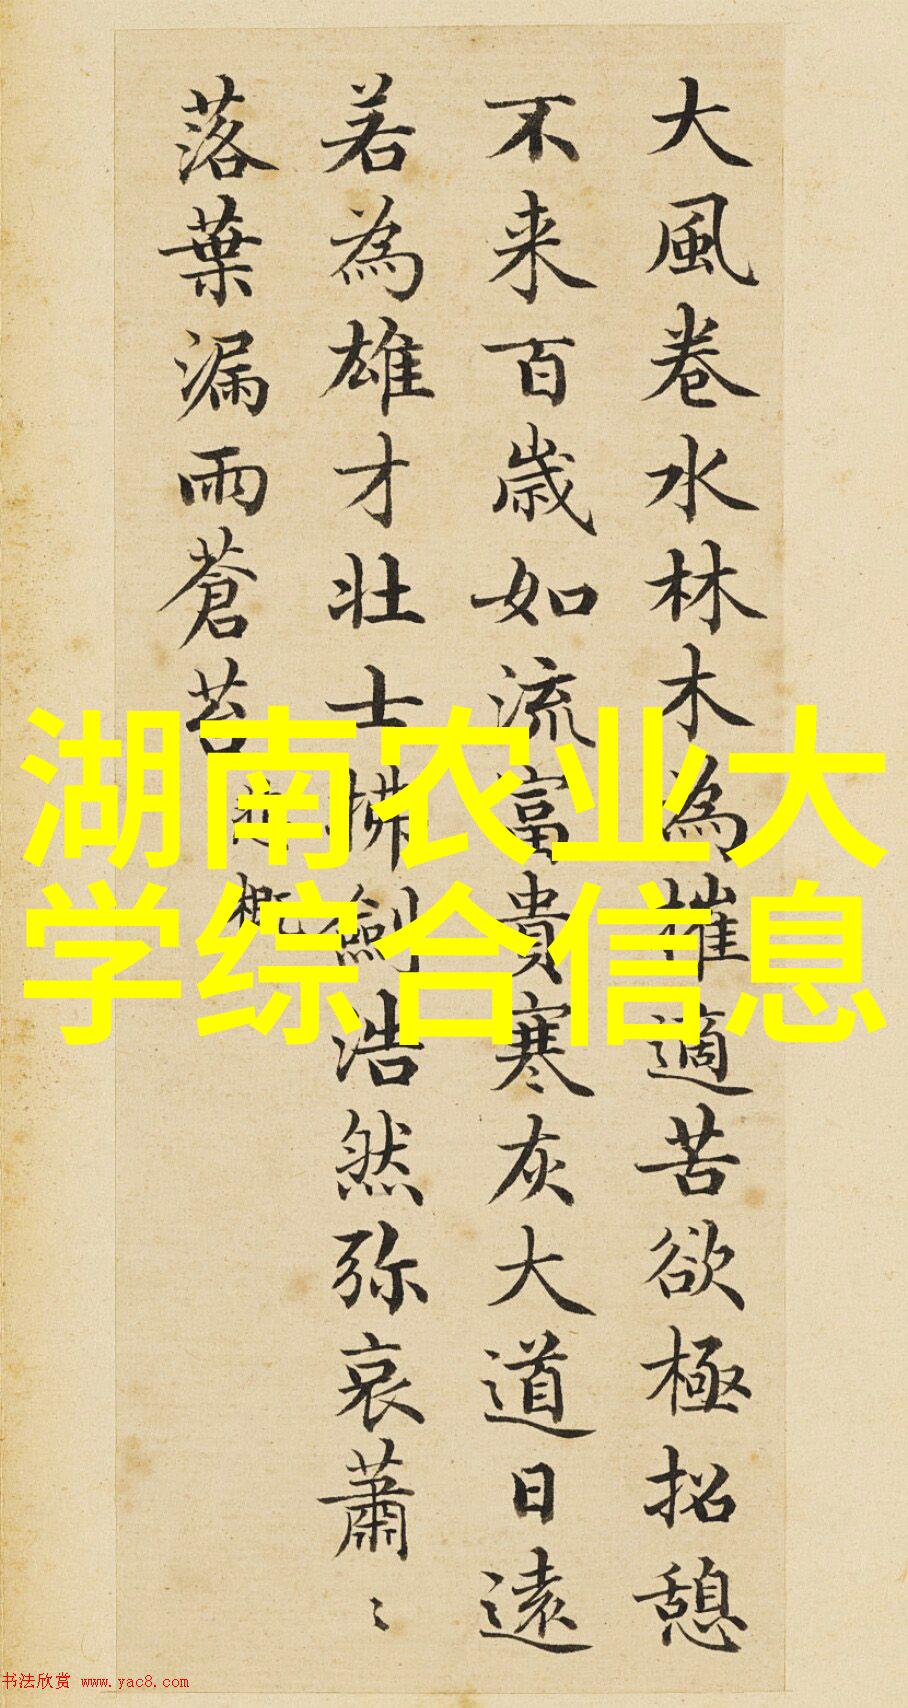 大風卷水林木為摧適苦欲極招憩
不来百歳如流富貴寒灰大道日遠
若為雄才壮士拂劍浩然弥哀蕭〻
落葉漏雨蒼苔
悲概
湖南农业大
学综合信息
书法欣赏 www.yac8.com